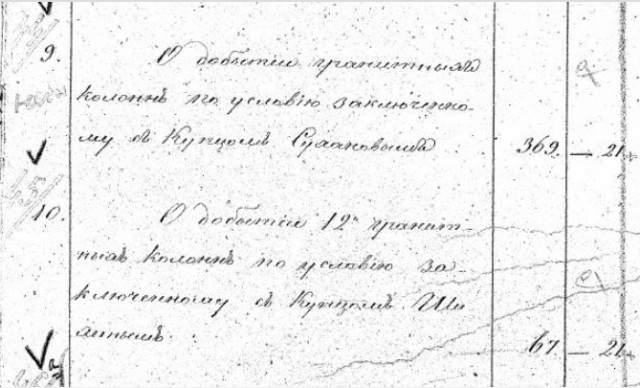 9. О добытіи гранитныхъ
колоннъ по условію заключенно-
му съ Купцомъ Сухановымъ 369. — 21.
10. О добытіи 12ᵗⁱ гранит-
ныхъ колоннъ по условію за-
ключенному съ Купцомъ Ши
хинымъ. 67 — 21.